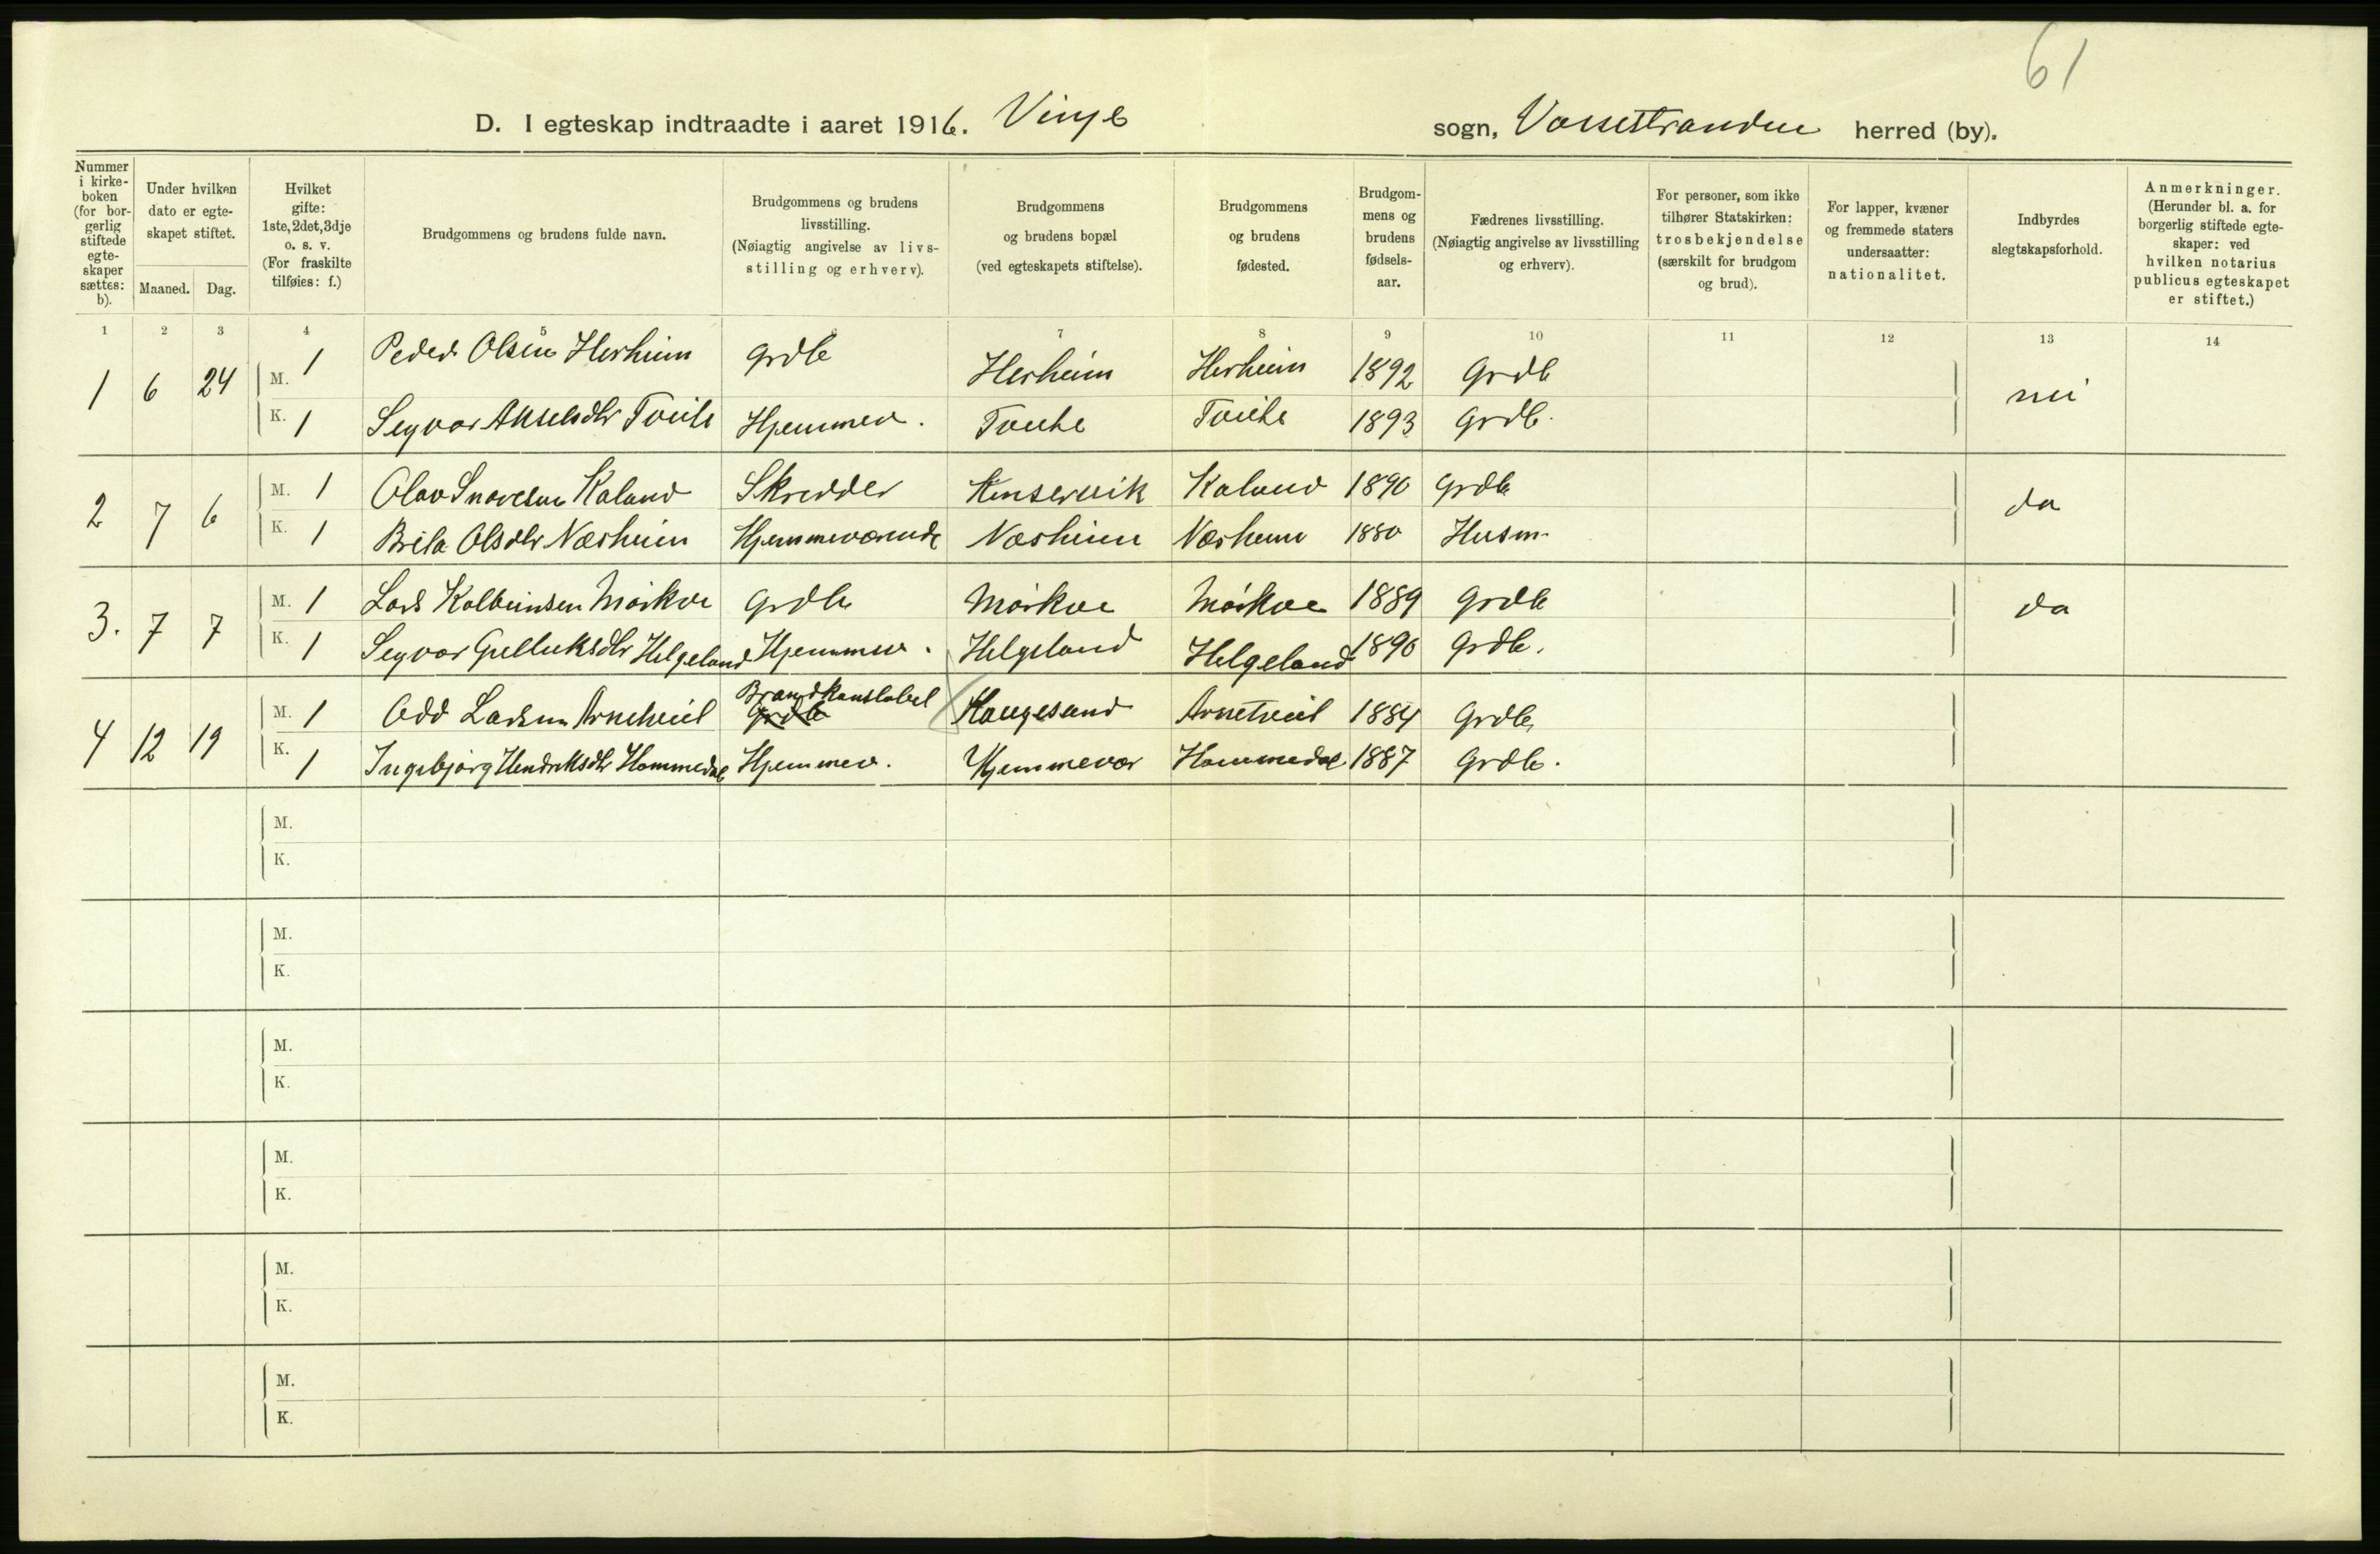 61
D. I egteskap indtraadte i aaret 1916. Vinje sogn, Vossestranden herred (by).
Nummer i kirke-boken (for bor-gerlig stiftede egte-skaper sættes: b).
Under hvilken dato er egte-skapet stiftet.
Maaned. Dag.
Hvilket gifte: 1ste, 2det, 3dje o. s. v. (For fraskilte tilføies: f.)
Brudgommens og brudens fulde navn.
Brudgommens og brudens livsstilling. (Nøiagtig angivelse av livs-stilling og erhverv).
Brudgommens og brudens bopæl (ved egteskapets stiftelse).
Brudgommens og brudens fødested.
Brudgom-mens og brudens fødsels-aar.
Fædrenes livsstilling. (Nøiagtig angivelse av livsstilling og erhverv).
For personer, som ikke tilhører Statskirken: trosbekjendelse (særskilt for brudgom og brud).
For lapper, kvæner og fremmede staters undersaatter: nationalitet.
Indbyrdes slegtskapsforhold.
Anmerkninger. (Herunder bl. a. for borgerlig stiftede egte-skaper: ved hvilken notarius publicus egteskapet er stiftet.)
1 2 3 4 5 6 7 8 9 10 11 12 13 14
1 6 24 M. 1 Peder Olsen Herheim Grdb Herheim Herheim 1892 Grdb nei
K. 1 Sygvor Akselsdtr Tvite Hjemmev. Tvite Tvite 1893 Grdb.
2 7 6 M. 1 Olav Knutsen Kaland Skredder Kinservik Kaland 1890 Grdb da
K. 1 Brita Olsdtr Næsheim Hjemmeværende Næsheim Næsheim 1880 Husm.
3. 7 7 M. 1 Lars Kolbeinsen Mörkve Grdb Mörkve Mörkve 1889 Grdb da
K. 1 Sygvor Gulleiksdtr Helgeland Hjemmev. Helgeland Helgeland 1890 Grdb.
4 12 19 M. 1 Odd Larsen Arnetveit Brandkonstabel Grdb Haugesund Arnetveit 1884 Grdb.
K. 1 Ingebjörg Hendriksdtr Hommedal Hjemmev. Hjemmevær Hommedal 1887 Grdb.
M.
K.
M.
K.
M.
K.
M.
K.
M.
K.
M.
K.